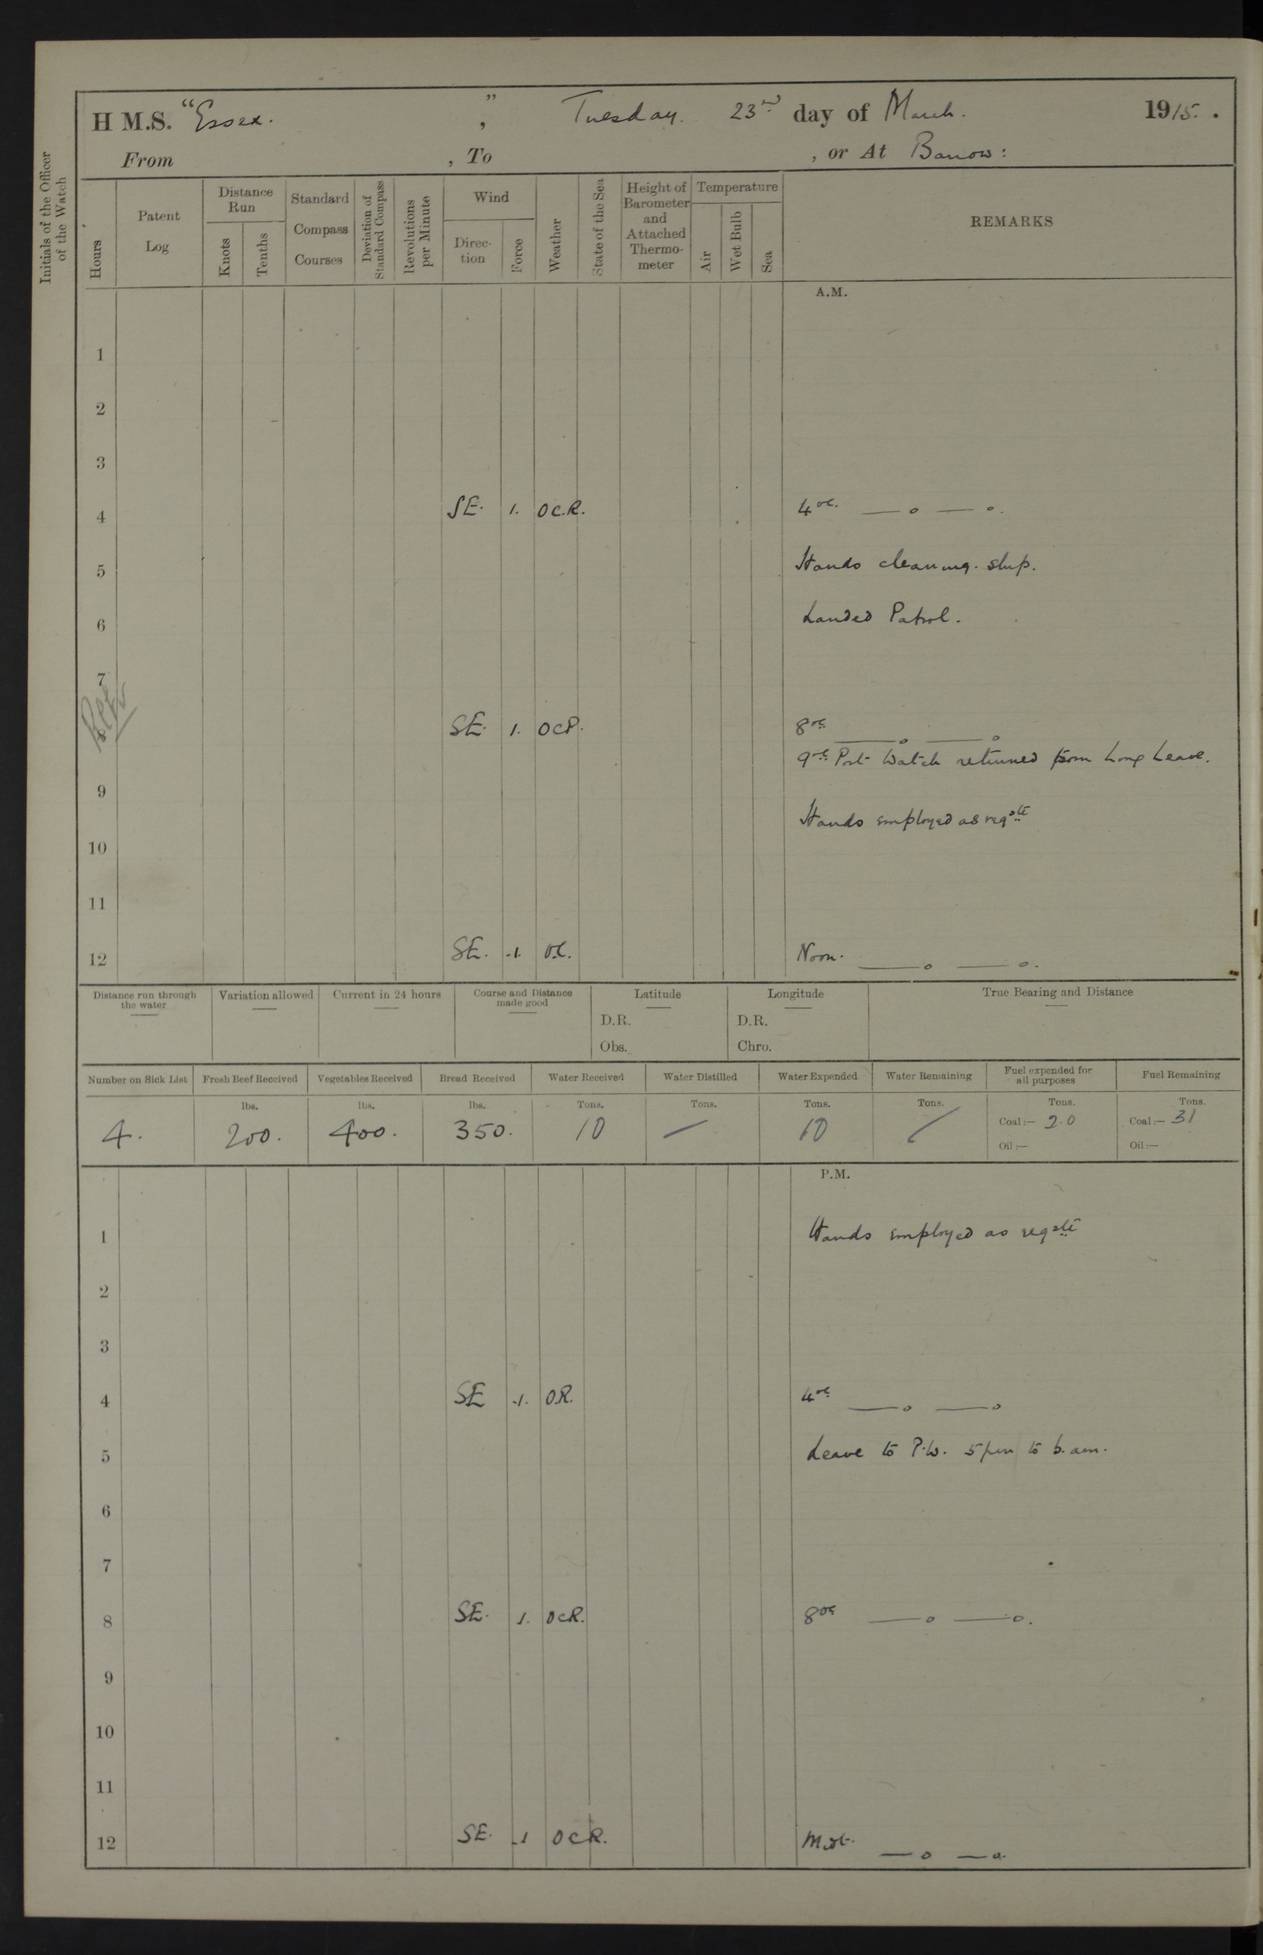 H M.S. "Essex. ", Tuesday. 23rd day of March. 1915. .
From , To , or At Barrow:
Initials of the Officer of the Watch
Hours
Patent Log
Distance Run
Knots
Tenths
Standard Compass Courses
Deviation of Standard Compass
Revolutions per Minute
Wind
Direc- tion
Force
Weather
State of the Sea
Height of Barometer and Attached Thermo- meter
Temperature
Air
Wet Bulb
Sea
REMARKS
A.M.
1
2
3
4 SE. 1. O.C.R. 4oc. — o — o.
5 Hands cleaning ship.
6 Landed Patrol.
7
SE. 1. OCP. 8oc — o — o
9oc Port Watch returned from Long Leave.
9
Hands employed as reqste
10
11
12 SE. -1. O.C. Noon. — o — o.
Distance run through the water
Variation allowed
Current in 24 hours
Course and Distance made good
Latitude
D.R.
Obs.
Longitude
D.R.
Chro.
True Bearing and Distance
Number on Sick List Fresh Beef Received Vegetables Received Bread Received Water Received Water Distilled Water Expended Water Remaining Fuel expended for all purposes Fuel Remaining
lbs. lbs. lbs. Tons. Tons. Tons. Tons. Tons. Tons.
4. 200. 400. 350. 10 — 10 / Coal:— 20 Coal:— 31
Oil:— Oil:—
P.M.
1 Hands employed as reqste
2
3
4 SE -1. O.R. 4oc — o — o
5 Leave to P.W. 5 pm to 6. am.
6
7
8 SE. 1. OCR. 8oc — o — o.
9
10
11
12 SE. -1 OCR. Mdt. — o — o.